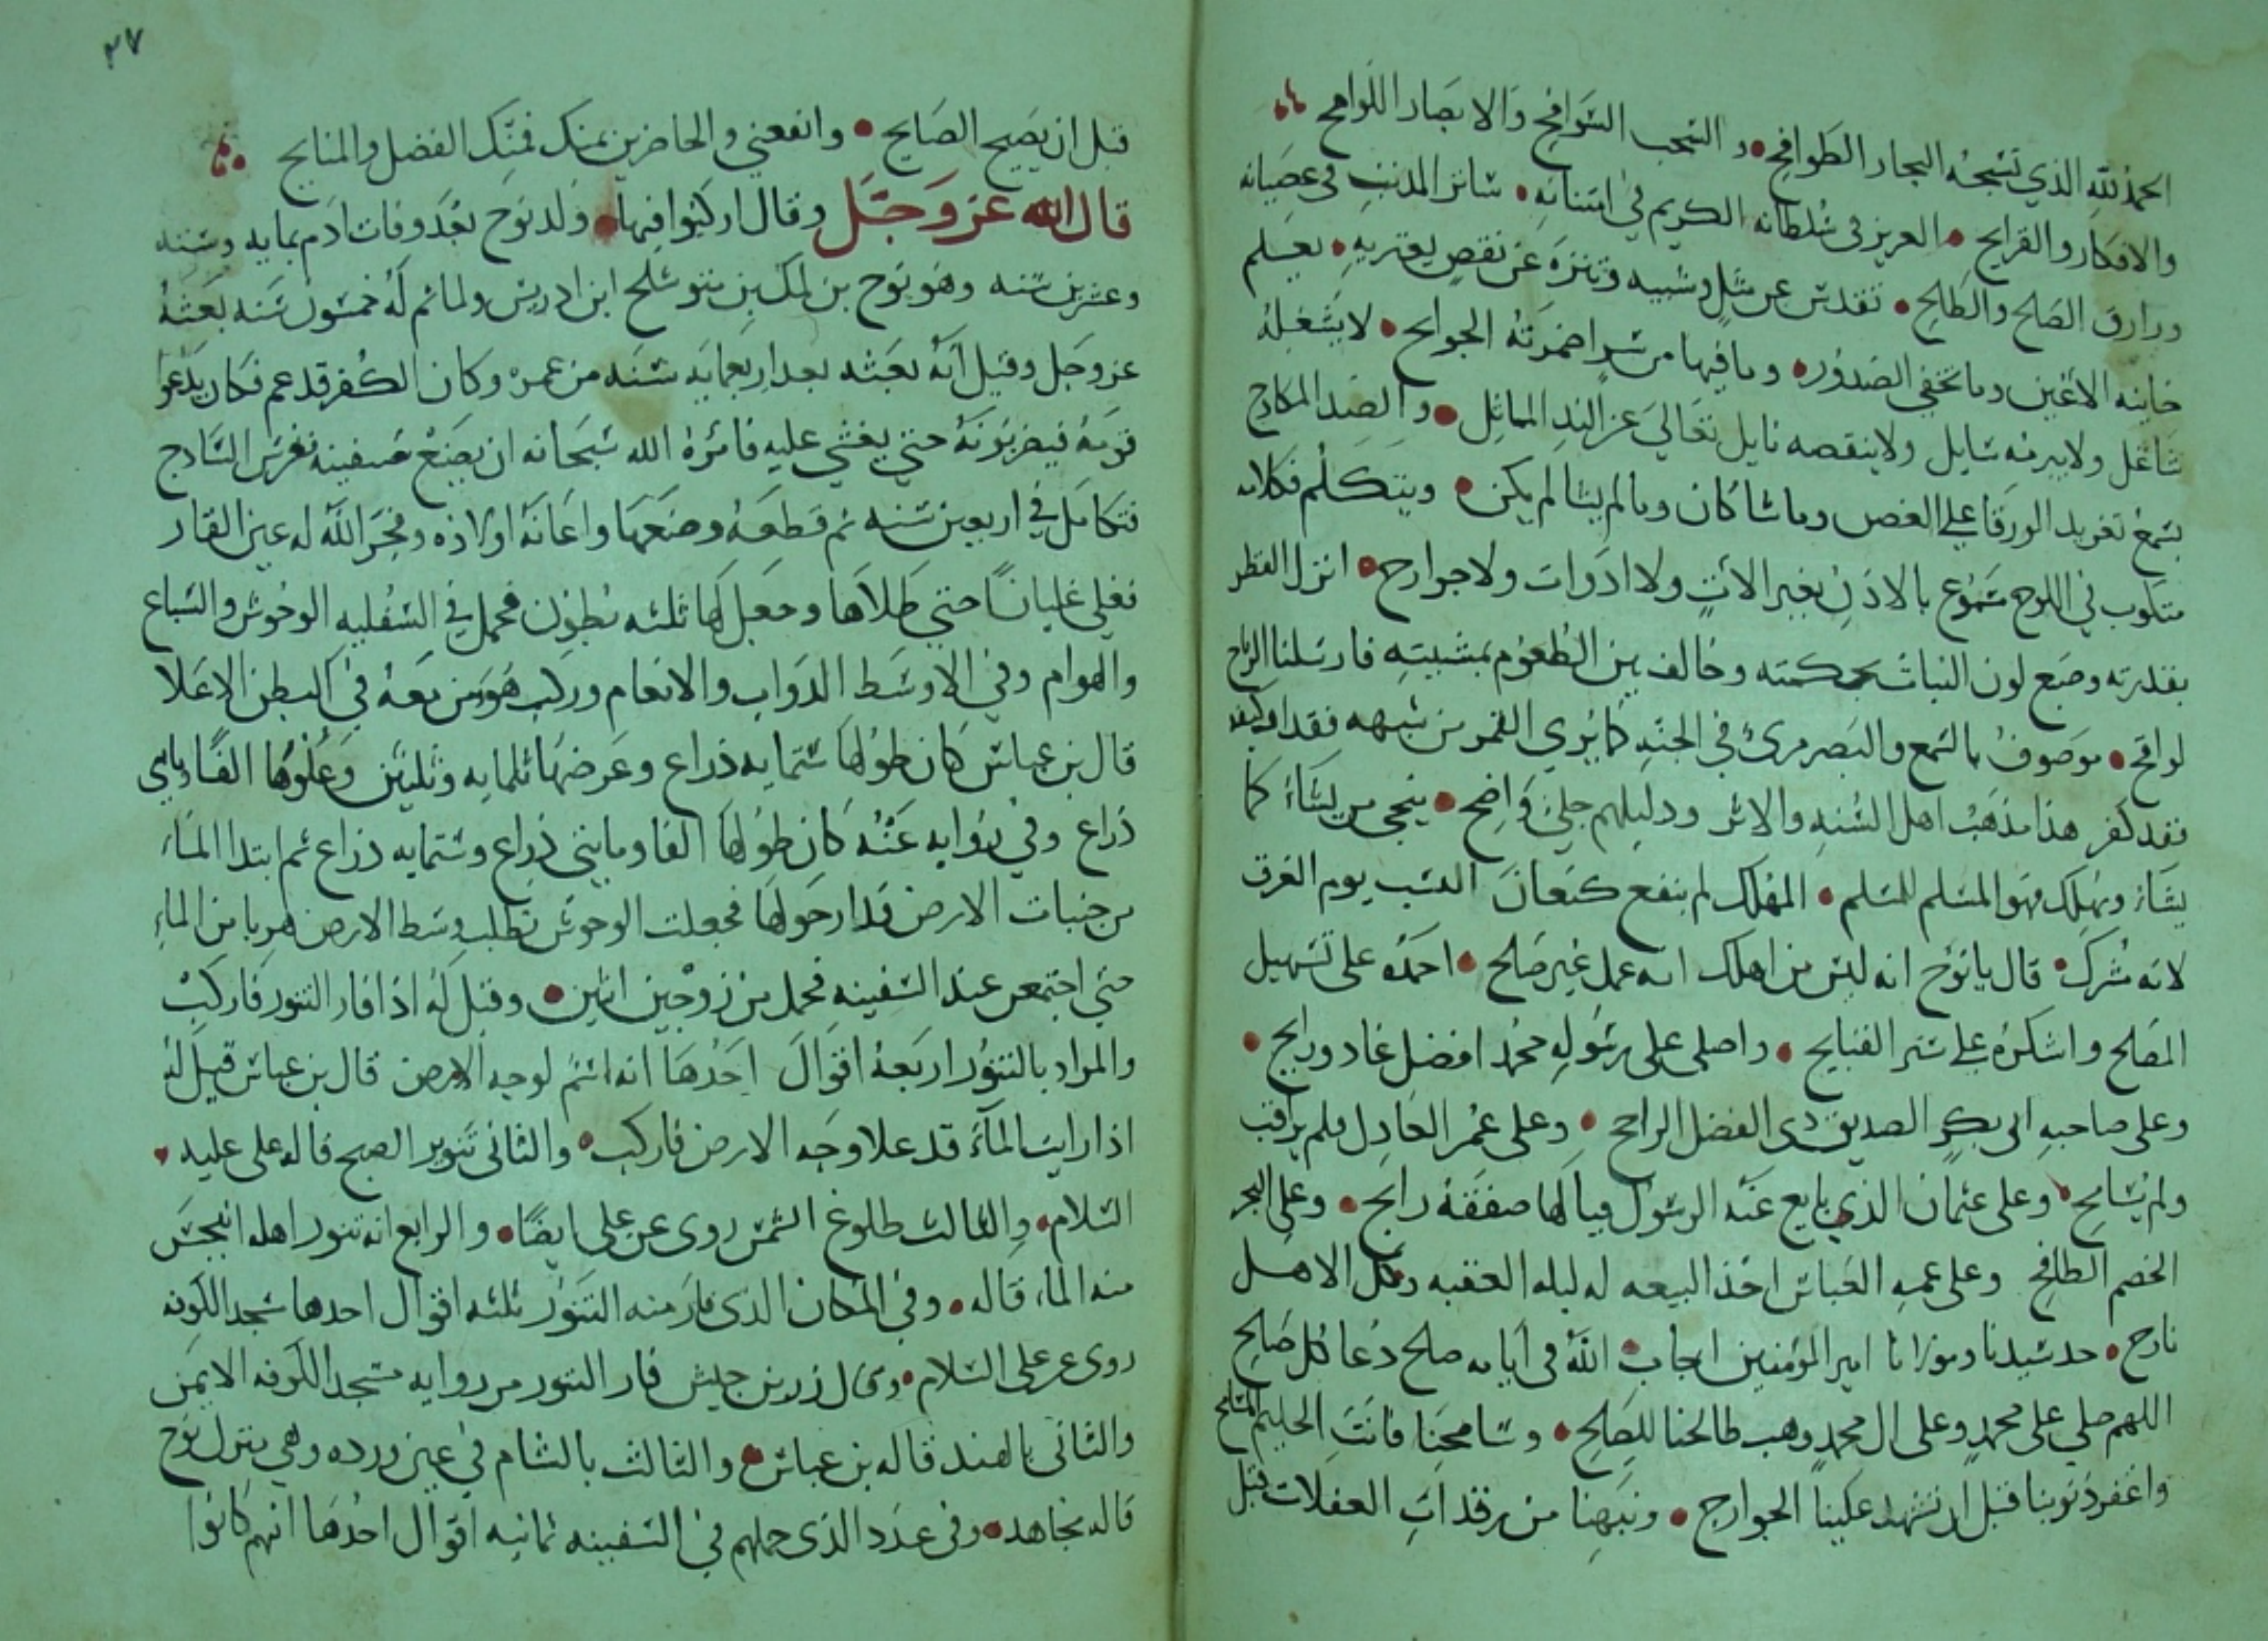 الحمد لله الذي تسبحه البحار الطوافح • والسحب السوافح والابصار اللوامح
والافكار والقرايح • العزيز في سلطانه الكريم في امتنانه • ساتر المذنب في عصيانه
ورازق الصالح والطالح • تقدس عن مثل وشبيه وتنزه عن نقص يعتريه • يعلم
خاينه الاعين وما تخفي الصدور • وما فيها من سر اضمرته الجوانح • لا يشغله
شاغل ولا يبرمه سايل ولا ينقصه نايل تعالي عن الند المماثل • والضد المكادح
يسمع تغريد الورقا علي الغصن وما شا كان وما لم يشا لم يكن • ويتكلم فكلامه
مكتوب في اللوح مسموع بالاذن بغير الات ولا ادوات ولا جوارح • انزل القطر
بقدرته وصبغ لون النبات بحكمته وخالف بين الطعوم بمشيته فارسلنا الرياح
لواقح • موصوف بالسمع والبصر مرئ في الجنه كما يري القمر من شبهه فقد
فقد كفر هذا مذهب اهل السنه والاثر ودليلهم جلي واضح • ينجي من يشاء كما
يشاء ويهلك فهو المسلم للمسلم • المهلك لم ينفع كنعان النسب يوم الغرق
لانه مشرك • قال يا نوح انه ليس من اهلك انه عمل غير صالح • احمده على تسهيل
المصالح واشكره علي ستر القبايح • واصلى على رسوله محمد افضل غاد ورايح •
وعلى صاحبه ابى بكر الصديق ذى الفضل الراجح • وعلى عمر العادل فلم يراقب
ولم يسامح • وعلى عثمان الذي بايع عنه الرسول فيا لها صفقة رابح • وعلى البحر
الخضم الطافح وعلى عمه العباس اخذ البيعه له ليله العقبه وكل الاهل
نازح • جد سيدنا ومولانا امير المؤمنين اجاب الله فى ايامه صالح دعا كل صالح
اللهم صلي على محمد وعلى ال محمد وهب طالحنا للصالح • وسامحنا فانت الحليم المسامح
واغفر ذنوبنا قبل ان تشهد علينا الجوارح • ونبهنا من رقدات الغفلات قبل
٣٧
قبل ان يصيح الصايح • وانفعني والحاضرين بمنك فمنك الفضل والمنايح
قال الله عز وجل وقال اركبوا فيها • ولد نوح بعد وفات ادم بمايه وسته
وعشرين سنه وهو نوح بن لمك بن متوشلح ابن ادريس ولما تم له خمسون سنه بعثه
عز وجل وقيل انه بعثه بعد اربعمايه سنه من عمره وكان الكفر قد عم فكان يدعوا
قومه فيضربونه حتي يغشي عليه فامره الله سبحانه ان يصنع سفينه فغرس الساج
فتكامل في اربعين سنه ثم قطعه وصنعها واعانه اولاده وفجر الله له عين القار
تغلي غليانا حتي طلاها وجعل لها ثلثه بطون فحمل في السفليه الوحوش والسباع
والهوام وفي الاوسط الدواب والانعام وركب هو ومن معه في البطن الاعلا
قال بن عباس كان طولها ستمايه ذراع وعرضها ثلمايه وثلثين وعلوها
ذراع وفي روايه عنه كان طولها الفا ومايتي ذراع وستمايه ذراع ثم ابتدا الماء
من جنبات الارض فدار حولها فجعلت الوحوش تطلب وسط الارض هربا من الماء
حتي اجتمعن عند السفينه فحمل من زوجين اثنين • وقيل له اذا فار التنور فاركب
والمراد بالتنور اربعه اقوال احدها انه اسم لوجه الارض قال بن عباس قيل له
اذا رايت الماء قد علا وجه الارض فاركب • والثانى تنوير الصبح قاله على عليه •
السلام • والثالث طلوع الشمس روى عن على ايضا • والرابع انه تنور اهله انبجس
منه الماء قاله • وفي المكان الذى فار منه التنور ثلثه اقوال احدها مسجد الكوفه
روى عن على السلام • وقال زر بن حبيش فار التنور من روايه مسجد الكوفه الايمن
والثانى بالهند قاله بن عباس • والثالث بالشام في عين ورده وهي منزل نوح
قاله مجاهد • وفى عدد الذى حملهم في السفينه ثمانيه اقوال احدها انهم كانوا